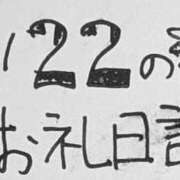 22の
お礼日